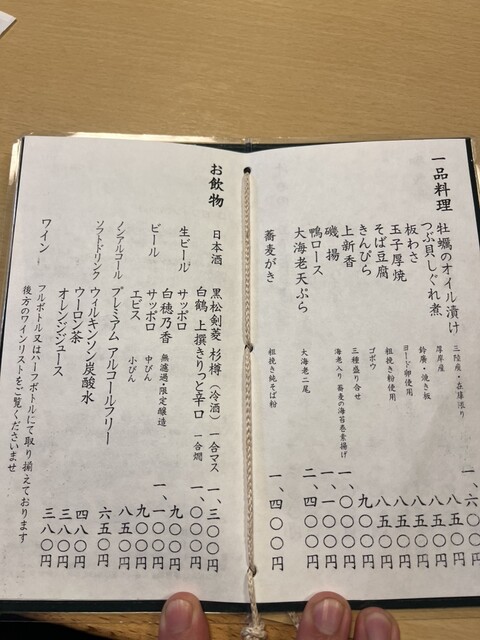 一品料理
牡蠣のオイル漬け 三陸産・在庫限り 一、六〇〇円
つぶ貝しぐれ煮 厚岸産 八五〇円
板わさ 鈴廣・焼き板 八五〇円
玉子厚焼 ヨード卵使用 八五〇円
そば豆腐 粗挽き粉使用 八五〇円
きんぴら ゴボウ 九〇〇円
上新香 三種盛り合せ 一、〇〇〇円
磯揚 海老入り 蕎麦の海苔巻素揚げ 一、一〇〇円
鴨ロース 一、四〇〇円
大海老天ぷら 大海老二尾 二、四〇〇円
蕎麦がき 粗挽き純そば粉 一、四〇〇円
お飲物
日本酒 黒松剣菱 杉樽（冷酒）一合マス 一、三〇〇円
白鶴 上撰きりっと辛口 一合燗 一、〇〇〇円
生ビール サッポロ 九〇〇円
白穂乃香 無濾過・限定醸造 一、一〇〇円
ビール サッポロ 中びん 九〇〇円
エビス 小びん 八五〇円
ノンアルコール プレミアム アルコールフリー 六五〇円
ソフトドリンク ウィルキンソン炭酸水 四八〇円
ウーロン茶 三八〇円
オレンジジュース 三八〇円
ワイン フルボトル又はハーフボトルにて取り揃えております
後方のワインリストをご覧くださいませ